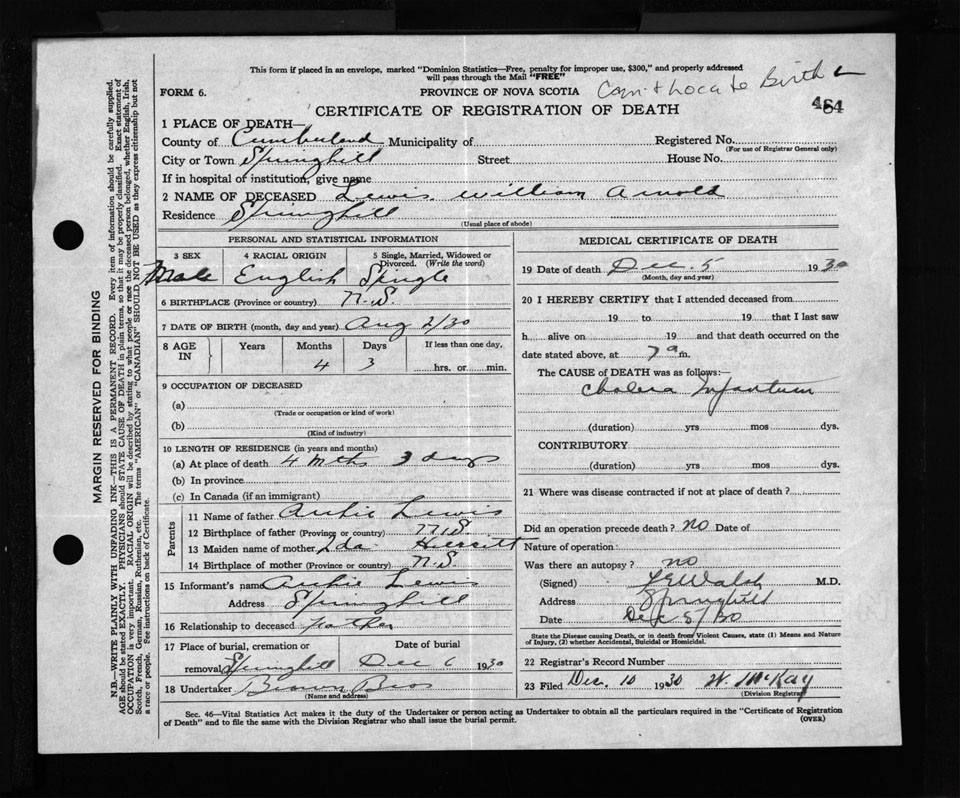 This form if placed in an envelope, marked "Dominion Statistics—Free, penalty for improper use, $300," and properly addressed
will pass through the Mail "FREE"
FORM 6.
PROVINCE OF NOVA SCOTIA
Birth
484
CERTIFICATE OF REGISTRATION OF DEATH
1 PLACE OF DEATH—
County of Cumberland Municipality of Registered No.
(For use of Registrar General only)
City or Town Springhill Street House No.
If in hospital of institution, give name
2 NAME OF DECEASED Lewis William Arnold
Residence Springhill
(Usual place of abode)
PERSONAL AND STATISTICAL INFORMATION
3 SEX 4 RACIAL ORIGIN 5 Single, Married, Widowed or
Divorced. (Write the word)
Male English Single
6 BIRTHPLACE (Province or country) N.S.
7 DATE OF BIRTH (month, day and year) Aug 2/30
8 AGE IN Years Months Days If less than one day,
4 3 hrs. or min.
9 OCCUPATION OF DECEASED
(a)
(Trade or occupation or kind of work)
(b)
(Kind of industry)
10 LENGTH OF RESIDENCE (in years and months)
(a) At place of death 4 mths 3 days
(b) In province
(c) In Canada (if an immigrant)
Parents
11 Name of father Archie Lewis
12 Birthplace of father (Province or country) N.S.
13 Maiden name of mother Ida
14 Birthplace of mother (Province or country) N.S.
15 Informant's name Archie Lewis
Address Springhill
16 Relationship to deceased Father
17 Place of burial, cremation or Date of burial
removal Springhill Dec 6 1930
18 Undertaker Brown Bros
(Name and address)
MEDICAL CERTIFICATE OF DEATH
19 Date of death Dec. 5 1930
(Month, day and year)
20 I HEREBY CERTIFY that I attended deceased from
19 to 19 that I last saw
h alive on 19 and that death occurred on the
date stated above, at 7 a m.
The CAUSE of DEATH was as follows:—
Cholera Infantum
(duration) yrs mos dys.
CONTRIBUTORY
(duration) yrs mos dys.
21 Where was disease contracted if not at place of death?
Did an operation precede death? no Date of
Nature of operation
Was there an autopsy? no
(Signed) Walsh M.D.
Address Springhill
Date Dec 5/30
State the Disease causing Death, or in death from Violent Causes, state (1) Means and Nature
of Injury, (2) whether Accidental, Suicidal or Homicidal.
22 Registrar's Record Number
23 Filed Dec. 10 1930 W. McKay
(Division Registrar)
Sec. 46—Vital Statistics Act makes it the duty of the Undertaker or person acting as Undertaker to obtain all the particulars required in the "Certificate of Registration
of Death" and to file the same with the Division Registrar who shall issue the burial permit.
(OVER)
MARGIN RESERVED FOR BINDING
N.B.—WRITE PLAINLY WITH UNFADING INK—THIS IS A PERMANENT RECORD. Every item of information should be carefully supplied.
AGE should be stated EXACTLY. PHYSICIANS should STATE CAUSE OF DEATH in plain terms, so that it may be properly classified. Exact statement of
OCCUPATION is very important. RACIAL ORIGIN will be described by stating to what people or race the deceased person belonged, whether English, Irish,
Scotch, French, German, Russian, Ruthenian, etc. The terms "AMERICAN" or "CANADIAN" SHOULD NOT BE USED as they express citizenship but not
a race or people. See instructions on back of Certificate.